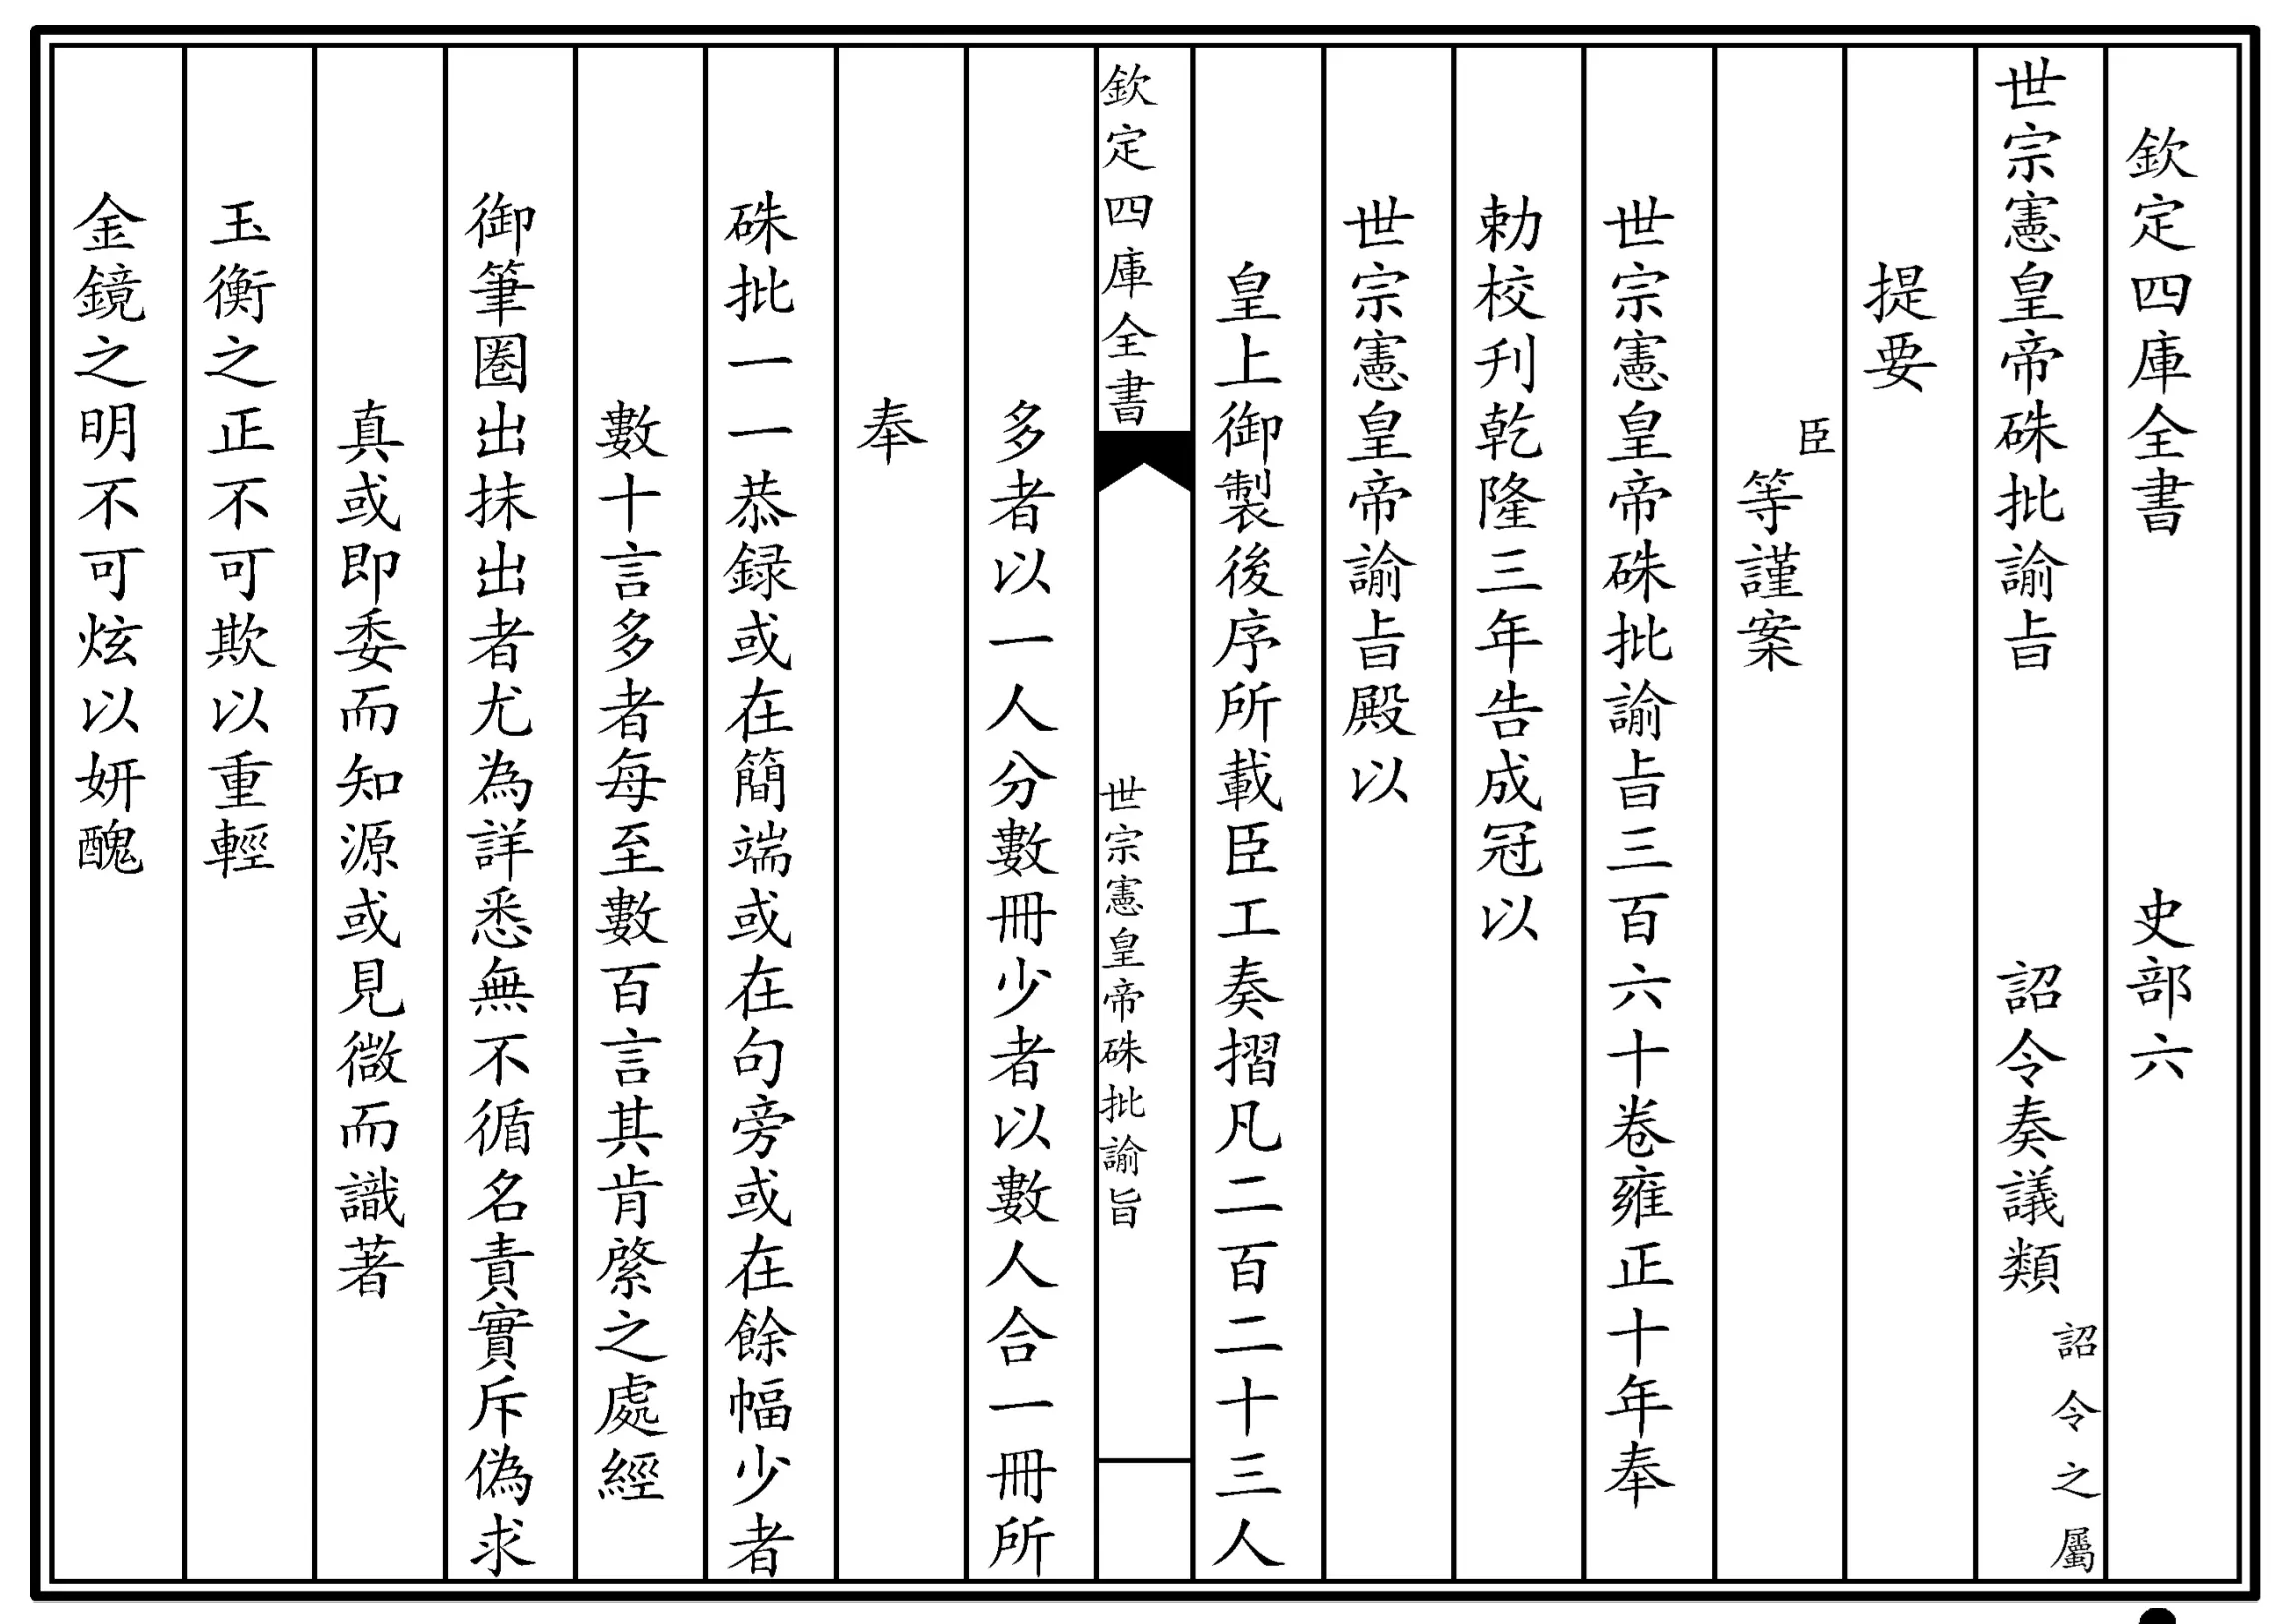 欽定四庫全書 史部六
世宗憲皇帝硃批諭㫖 詔令奏議類 詔令之屬
提要
臣等謹案
世宗憲皇帝硃批諭㫖三百六十卷雍正十年奉
勅校刋乾隆三年告成冠以
世宗憲皇帝諭㫖殿以
皇上御製後序所載臣工奏摺凡二百二十三人
欽定四庫全書 世宗憲皇帝硃批諭旨
多者以一人分數冊少者以數人合一冊所
奉
硃批一一恭録或在簡端或在句旁或在餘幅少者
數十言多者每至數百言其肯綮之處經
御筆圏出抹出者尤為詳悉無不循名責實斥偽求
真或即委而知源或見微而識著
玉衡之正不可欺以重輕
金鏡之明不可炫以妍醜